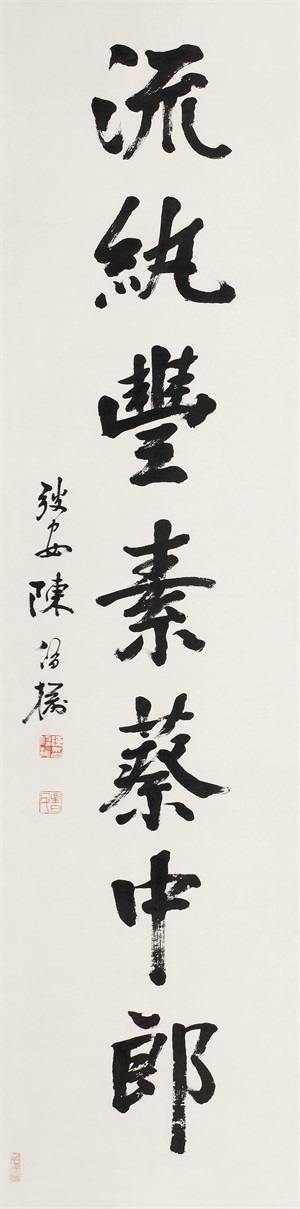 流紈豐素蔡中郎
安陳